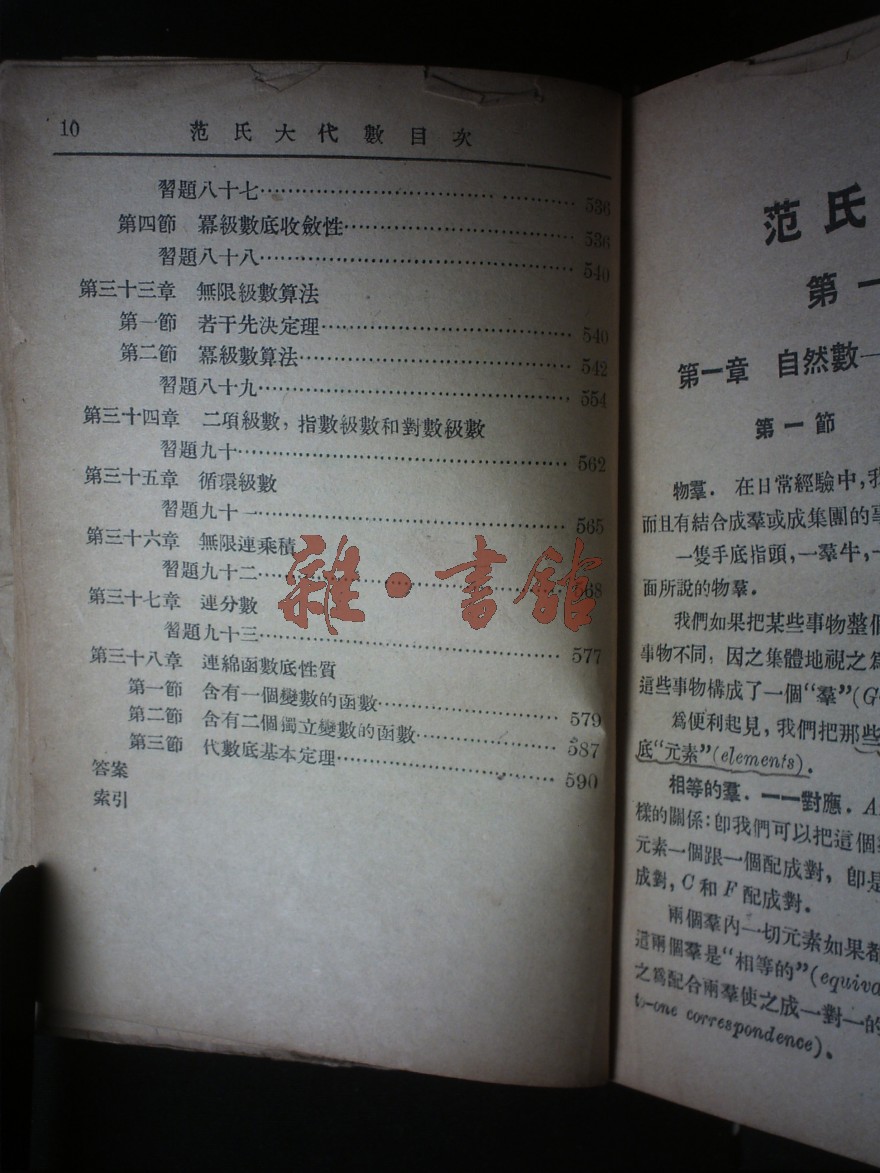 10
范氏大代數目次
習題八十七 536
第四節 冪級數底收斂性 536
習題八十八 540
第三十三章 無限級數算法
第一節 若干先決定理 540
第二節 冪級數算法 542
習題八十九 554
第三十四章 二項級數，指數級數和對數級數
習題九十 562
第三十五章 循環級數
習題九十一 565
第三十六章 無限連乘積
習題九十二 568
第三十七章 連分數
習題九十三 577
第三十八章 連綿函數底性質
第一節 含有一個變數的函數 579
第二節 含有二個獨立變數的函數 587
第三節 代數底基本定理 590
答案
索引
雜·書館
范氏
第一
第一章 自然數—
第一節
物羣．在日常經驗中，我
而且有結合成羣或成集團的事
一隻手底指頭，一羣牛，一
面所說的物羣．
我們如果把某些事物整個
事物不同，因之集體地視之爲
這些事物構成了一個“羣”(G
爲便利起見，我們把那些
底“元素”(elements)．
相等的羣．一一對應．A
樣的關係：卽我們可以把這個
元素一個跟一個配成對，卽是
成對，C和F配成對．
兩個羣內一切元素如果都
這兩個羣是“相等的”(equiva
之爲配合兩羣使之成一對一的
to-one correspondence)．